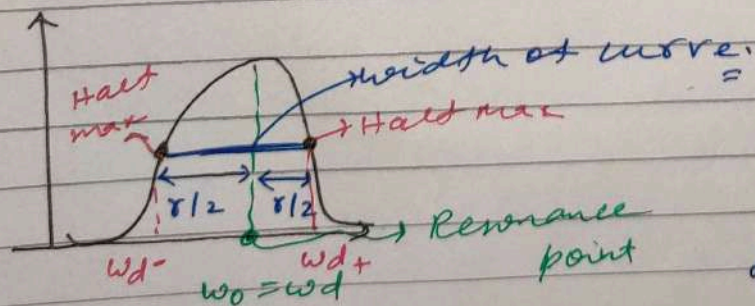 Half
max
width of curve.
Half max
r/2
r/2
Resonance
point
ωd-
ω0 = ωd
ωd+